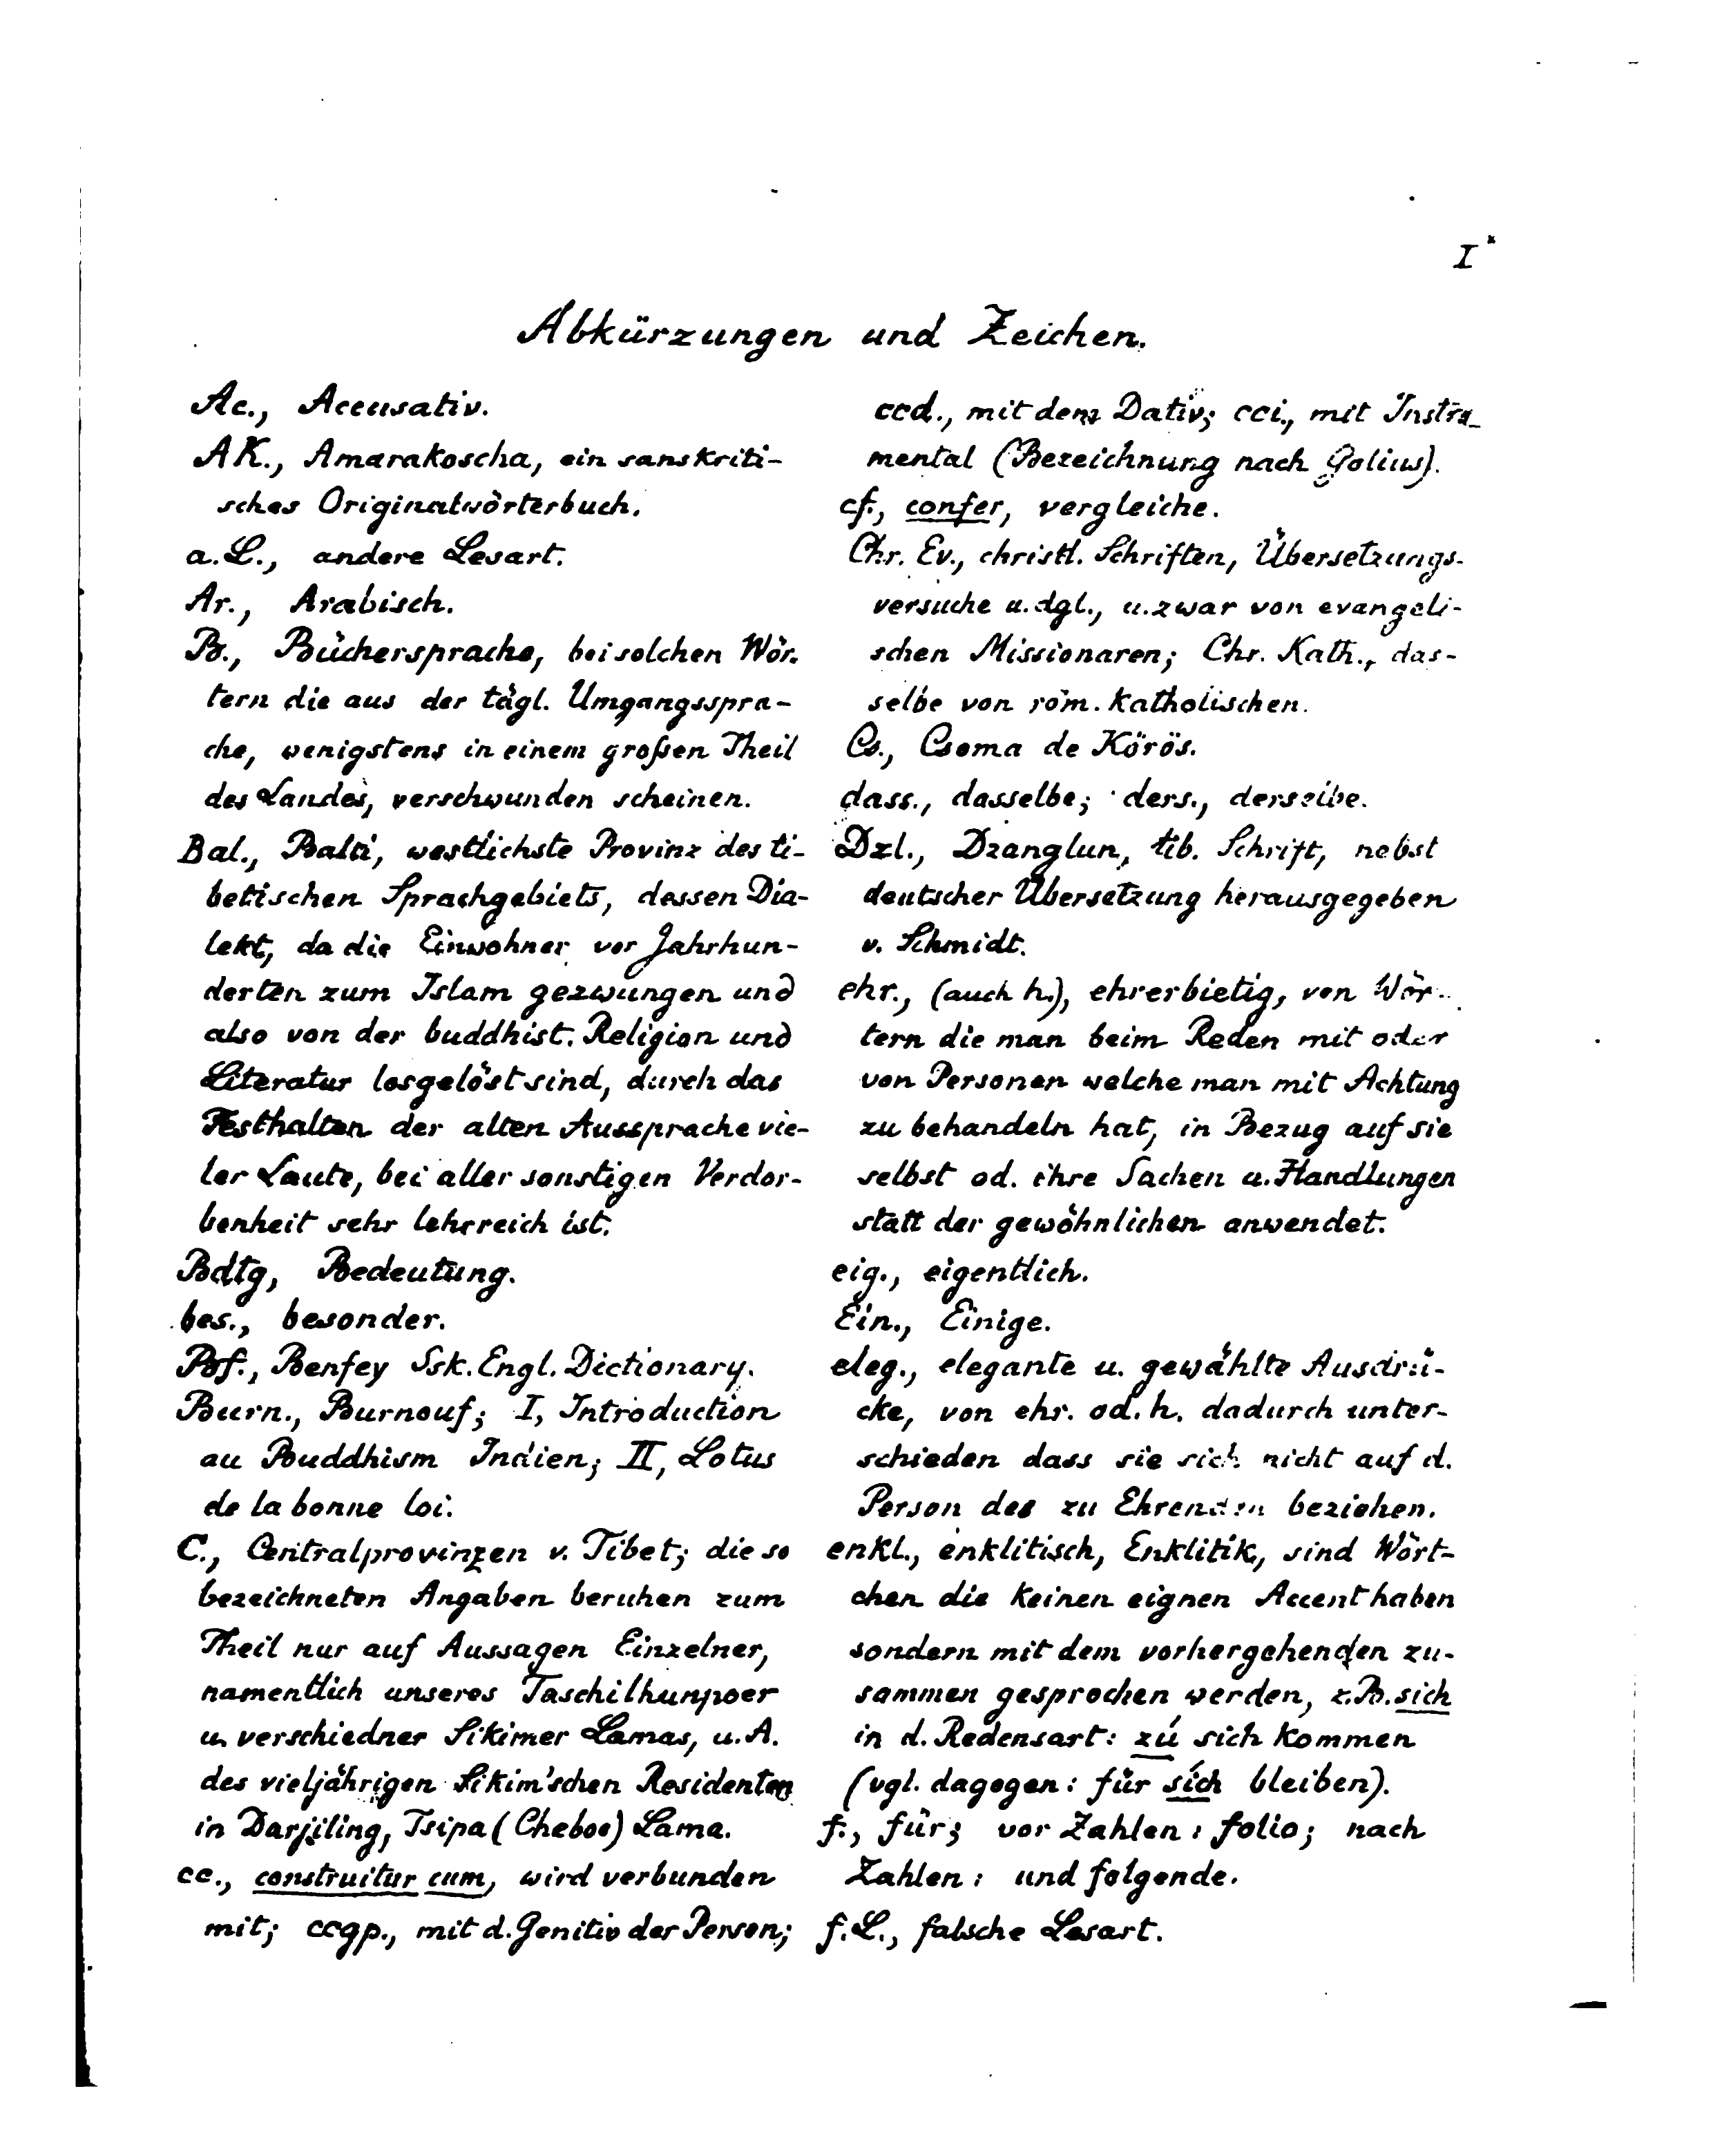 I*
Abkürzungen und Zeichen.
Ac., Accusativ.
AK., Amarakoscha, ein sanskriti-
sches Originalwörterbuch.
a.L., andere Lesart.
Ar., Arabisch.
B., Büchersprache, bei solchen Wör-
tern die aus der tägl. Umgangsspra-
che, wenigstens in einem großen Theil
des Landes, verschwunden scheinen.
Bal., Balti, westlichste Provinz des ti-
betischen Sprachgebiets, dessen Dia-
lekt, da die Einwohner vor Jahrhun-
derten zum Islam gezwungen und
also von der buddhist. Religion und
Literatur losgelöst sind, durch das
Festhalten der alten Aussprache vie-
ler Laute, bei aller sonstigen Verdor-
benheit sehr lehrreich ist.
Bdtg, Bedeutung.
bes., besonder.
Bf., Benfey Ssk. Engl. Dictionary.
Burn., Burnouf; I, Introduction
au Buddhism Indien; II, Lotus
de la bonne loi.
C., Centralprovinzen v. Tibet; die so
bezeichneten Angaben beruhen zum
Theil nur auf Aussagen Einzelner,
namentlich unseres Taschilhunpoer
u. verschiedner Sikimer Lamas, u.A.
des vieljährigen Sikim'schen Residenten
in Darjiling, Tsipa (Cheboo) Lama.
cc., construitur cum, wird verbunden
mit; ccgp., mit d. Genitiv der Person;
ccd., mit dem Dativ; cci., mit Instru-
mental (Bezeichnung nach Golius).
cf., confer, vergleiche.
Chr. Ev., christl. Schriften, Übersetzungs-
versuche u. dgl., u. zwar von evangeli-
schen Missionaren; Chr. Kath., das-
selbe von röm. katholischen.
Cs., Csoma de Körös.
dass., dasselbe; ders., derselbe.
Dzl., Dzanglun, tib. Schrift, nebst
deutscher Übersetzung herausgegeben
v. Schmidt.
ehr., (auch h.), ehrerbietig, von Wör-
tern die man beim Reden mit oder
von Personen welche man mit Achtung
zu behandeln hat, in Bezug auf sie
selbst od. ihre Sachen u. Handlungen
statt der gewöhnlichen anwendet.
eig., eigentlich.
Ein., Einige.
eleg., elegante u. gewählte Ausdrü-
cke, von ehr. od. h. dadurch unter-
schieden dass sie sich nicht auf d.
Person des zu Ehrenden beziehen.
enkl., enklitisch, Enklitik, sind Wört-
chen die keinen eignen Accent haben
sondern mit dem vorhergehenden zu-
sammen gesprochen werden, z.B. sich
in d. Redensart: zú sich kommen
(vgl. dagegen: für sích bleiben).
f., für; vor Zahlen: folio; nach
Zahlen: und folgende.
f.L., falsche Lesart.